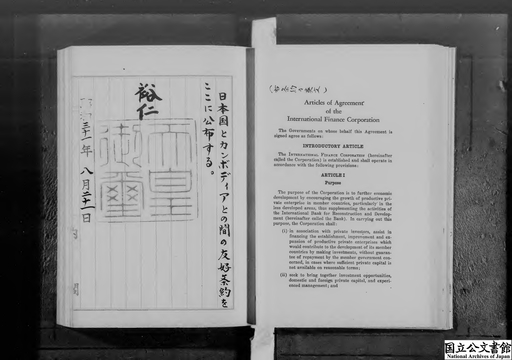 日本国とカンボディアとの間の友好条約を
ここに公布する。
裕仁
天皇
御璽
三十一年 八月二十一日
Articles of Agreement
of the
International Finance Corporation
The Governments on whose behalf this Agreement is
signed agree as follows:
INTRODUCTORY ARTICLE
The INTERNATIONAL FINANCE CORPORATION (hereinafter
called the Corporation) is established and shall operate in
accordance with the following provisions:
ARTICLE I
Purpose
The purpose of the Corporation is to further economic
development by encouraging the growth of productive pri-
vate enterprise in member countries, particularly in the
less developed areas, thus supplementing the activities of
the International Bank for Reconstruction and Develop-
ment (hereinafter called the Bank). In carrying out this
purpose, the Corporation shall:
(i) in association with private investors, assist in
financing the establishment, improvement and ex-
pansion of productive private enterprises which
would contribute to the development of its member
countries by making investments, without guaran-
tee of repayment by the member government con-
cerned, in cases where sufficient private capital is
not available on reasonable terms;
(ii) seek to bring together investment opportunities,
domestic and foreign private capital, and experi-
enced management; and
国立公文書館
National Archives of Japan